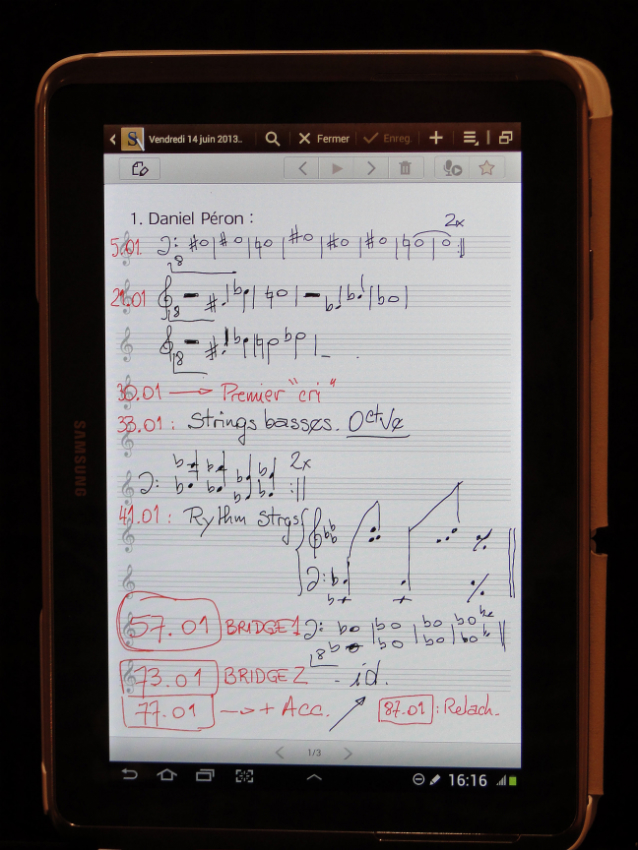 Vendredi 14 juin 2013..
Fermer
Enreg.
1. Daniel Péron :
2x
5.01
8
21.01
8
8
30.01 → Premier "cri"
33.01 : Strings basses. Octve
2x
41.01 : Rythm Strgs
57.01 BRIDGE 1
8
73.01 BRIDGE 2 - id.
77.01 → + Acc.
87.01 : Relach.
1/3
16:16
SAMSUNG